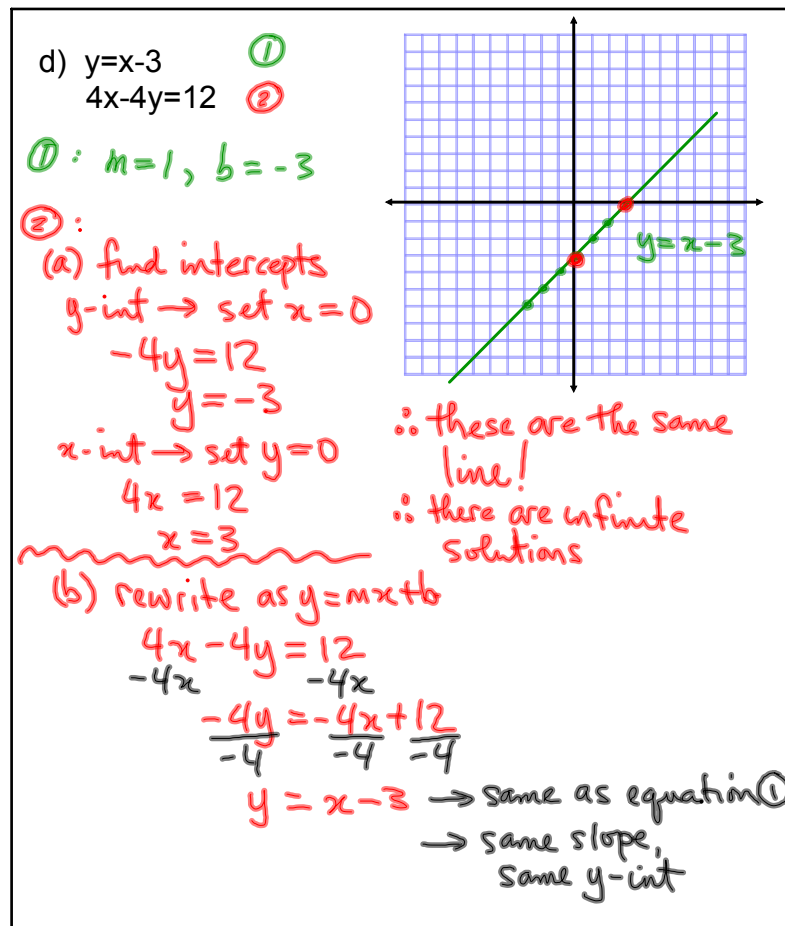 d) y=x-3 ①
4x-4y=12 ②
①: m=1, b=-3
②:
(a) find intercepts
y-int → set x=0
-4y=12
y=-3
x-int → set y=0
4x=12
x=3
y=x-3
∴ these are the same
line!
∴ there are infinite
solutions
(b) rewrite as y=mx+b
4x-4y=12
-4x -4x
-4y=-4x+12
-4 -4 -4
y=x-3 → same as equation①
→ same slope,
same y-int